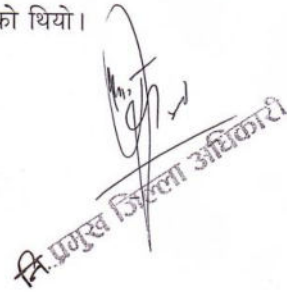 को थियो।
नि. प्रमुख जिल्ला अधिकारी